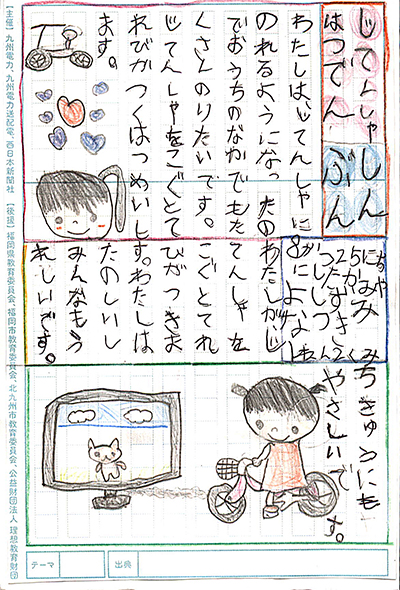 じてんしゃ
はつでん
しん
ぶん
わたしは、じてんしゃに
のれるようになったの
でおうちのなかでもた
くさんのりたいです。
じてんしゃをこぐとて
れびがつくはつめい
ます。
わたしがじ
てんしゃを
こぐとてれ
びがつきま
す。わたしは
たのしいし
みんなもう
れしいです。
ちきゅうにも
やさしいです。
【主催】九州電力、九州電力送配電、西日本新聞社 【後援】福岡県教育委員会、福岡市教育委員会、北九州市教育委員会、公益財団法人 理想教育財団
テーマ
出典